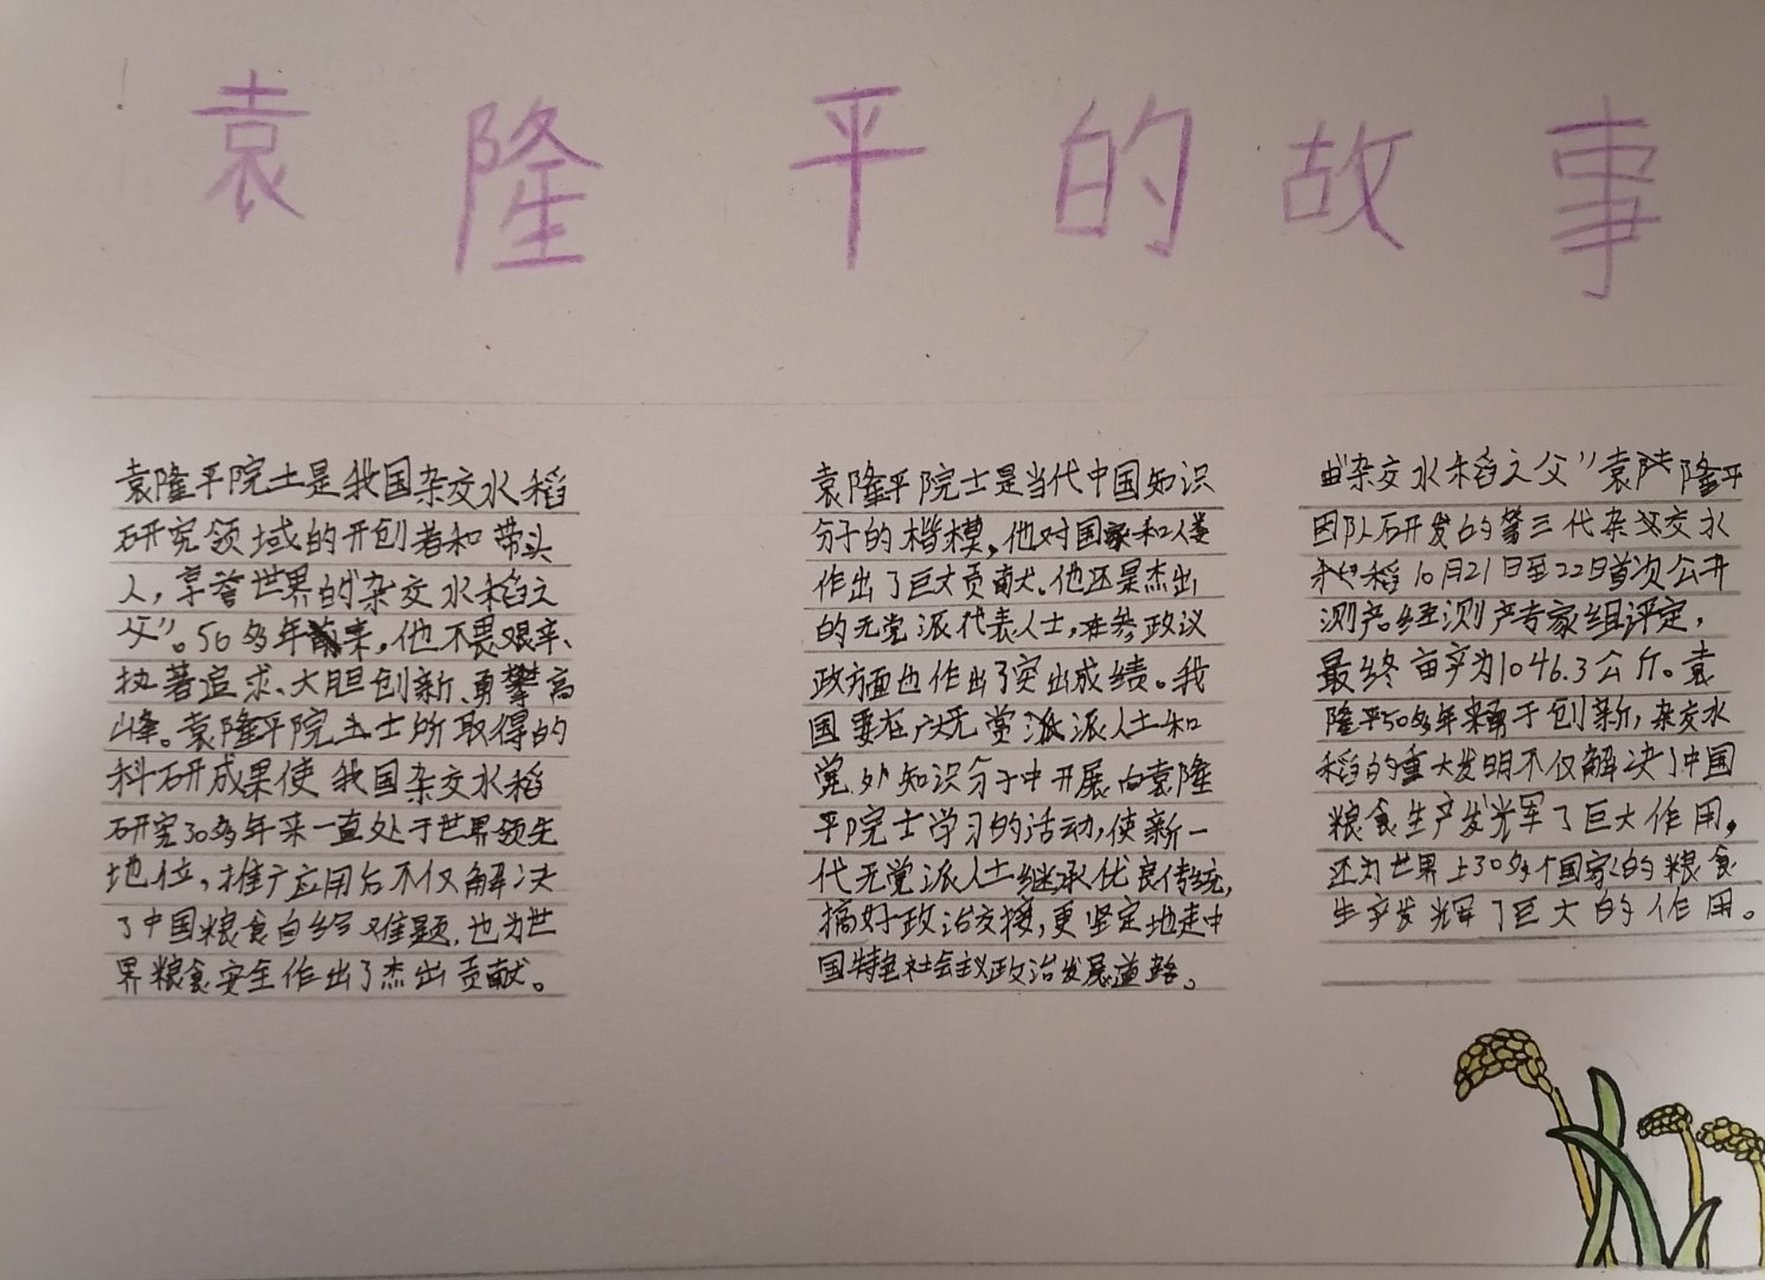 袁隆平的故事
袁隆平院士是我国杂交水稻
研究领域的开创者和带头
人，享誉世界的“杂交水稻之
父”。50多年来，他不畏艰辛、
执著追求、大胆创新、勇攀高
峰。袁隆平院士所取得的
科研成果使我国杂交水稻
研究30多年来一直处于世界领先
地位，推广应用后不仅解决
了中国粮食自给难题，也为世
界粮食安全作出了杰出贡献。
袁隆平院士是当代中国知识
分子的楷模，他对国家和人类
作出了巨大贡献。他还是杰出
的无党派代表人士，在参政议
政方面也作出了突出成绩。我
国要在广大无党派派人士和
党外知识分子中开展向袁隆
平院士学习的活动，使新一
代无党派人士继承优良传统，
搞好政治交接，更坚定地走中
国特色社会主义政治发展道路。
由“杂交水稻之父”袁隆平
团队研发的第三代杂交水
稻10月21日至22日首次公开
测产。经测产专家组评定，
最终亩产为1046.3公斤。袁
隆平50多年来勇于创新，杂交水
稻的重大发明不仅解决了中国
粮食生产发光挥了巨大作用，
还为世界上30多个国家的粮食
生产发挥了巨大的作用。